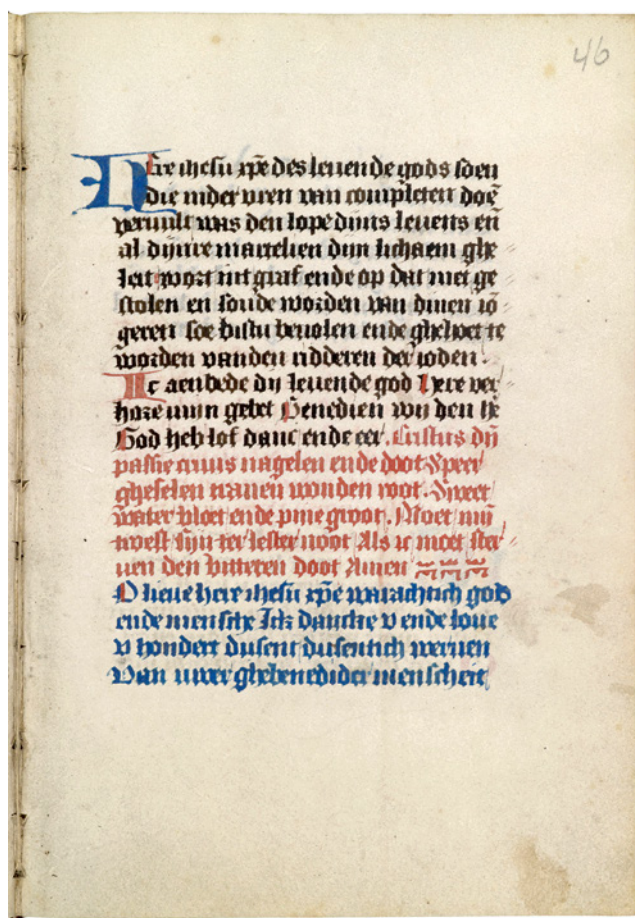 46
Here ihesu xpē des leuende gods soen
die inder vren van completen doē
veruult was den lope dijns leuens eñ
al dijnre martelien dijn lichaem ghe
leit wort int graf ende op dat niet ge
stolen en soude worden van dinen iō
geren soe bistu beuolen ende ghehoet te
worden vanden ridderen der ioden.
Ic aenbede dij leuende god Here ver
hore mijn gebet Benedien wij den he
God heb lof danc ende eer. Cristus dij
passie cruus nagelen ende doot Speer
gheselen tranen wonden root. Sweet
water bloet ende pine groot. Moet mij
troest sijn ter lester noot Als ic moet ster
uen den bitteren doot Amen
O lieue here ihesu xpē warachtich god
ende mensche Ick dancke v ende loue
v hondert dusent dusentich weruen
Van uwer ghebenedider menscheit